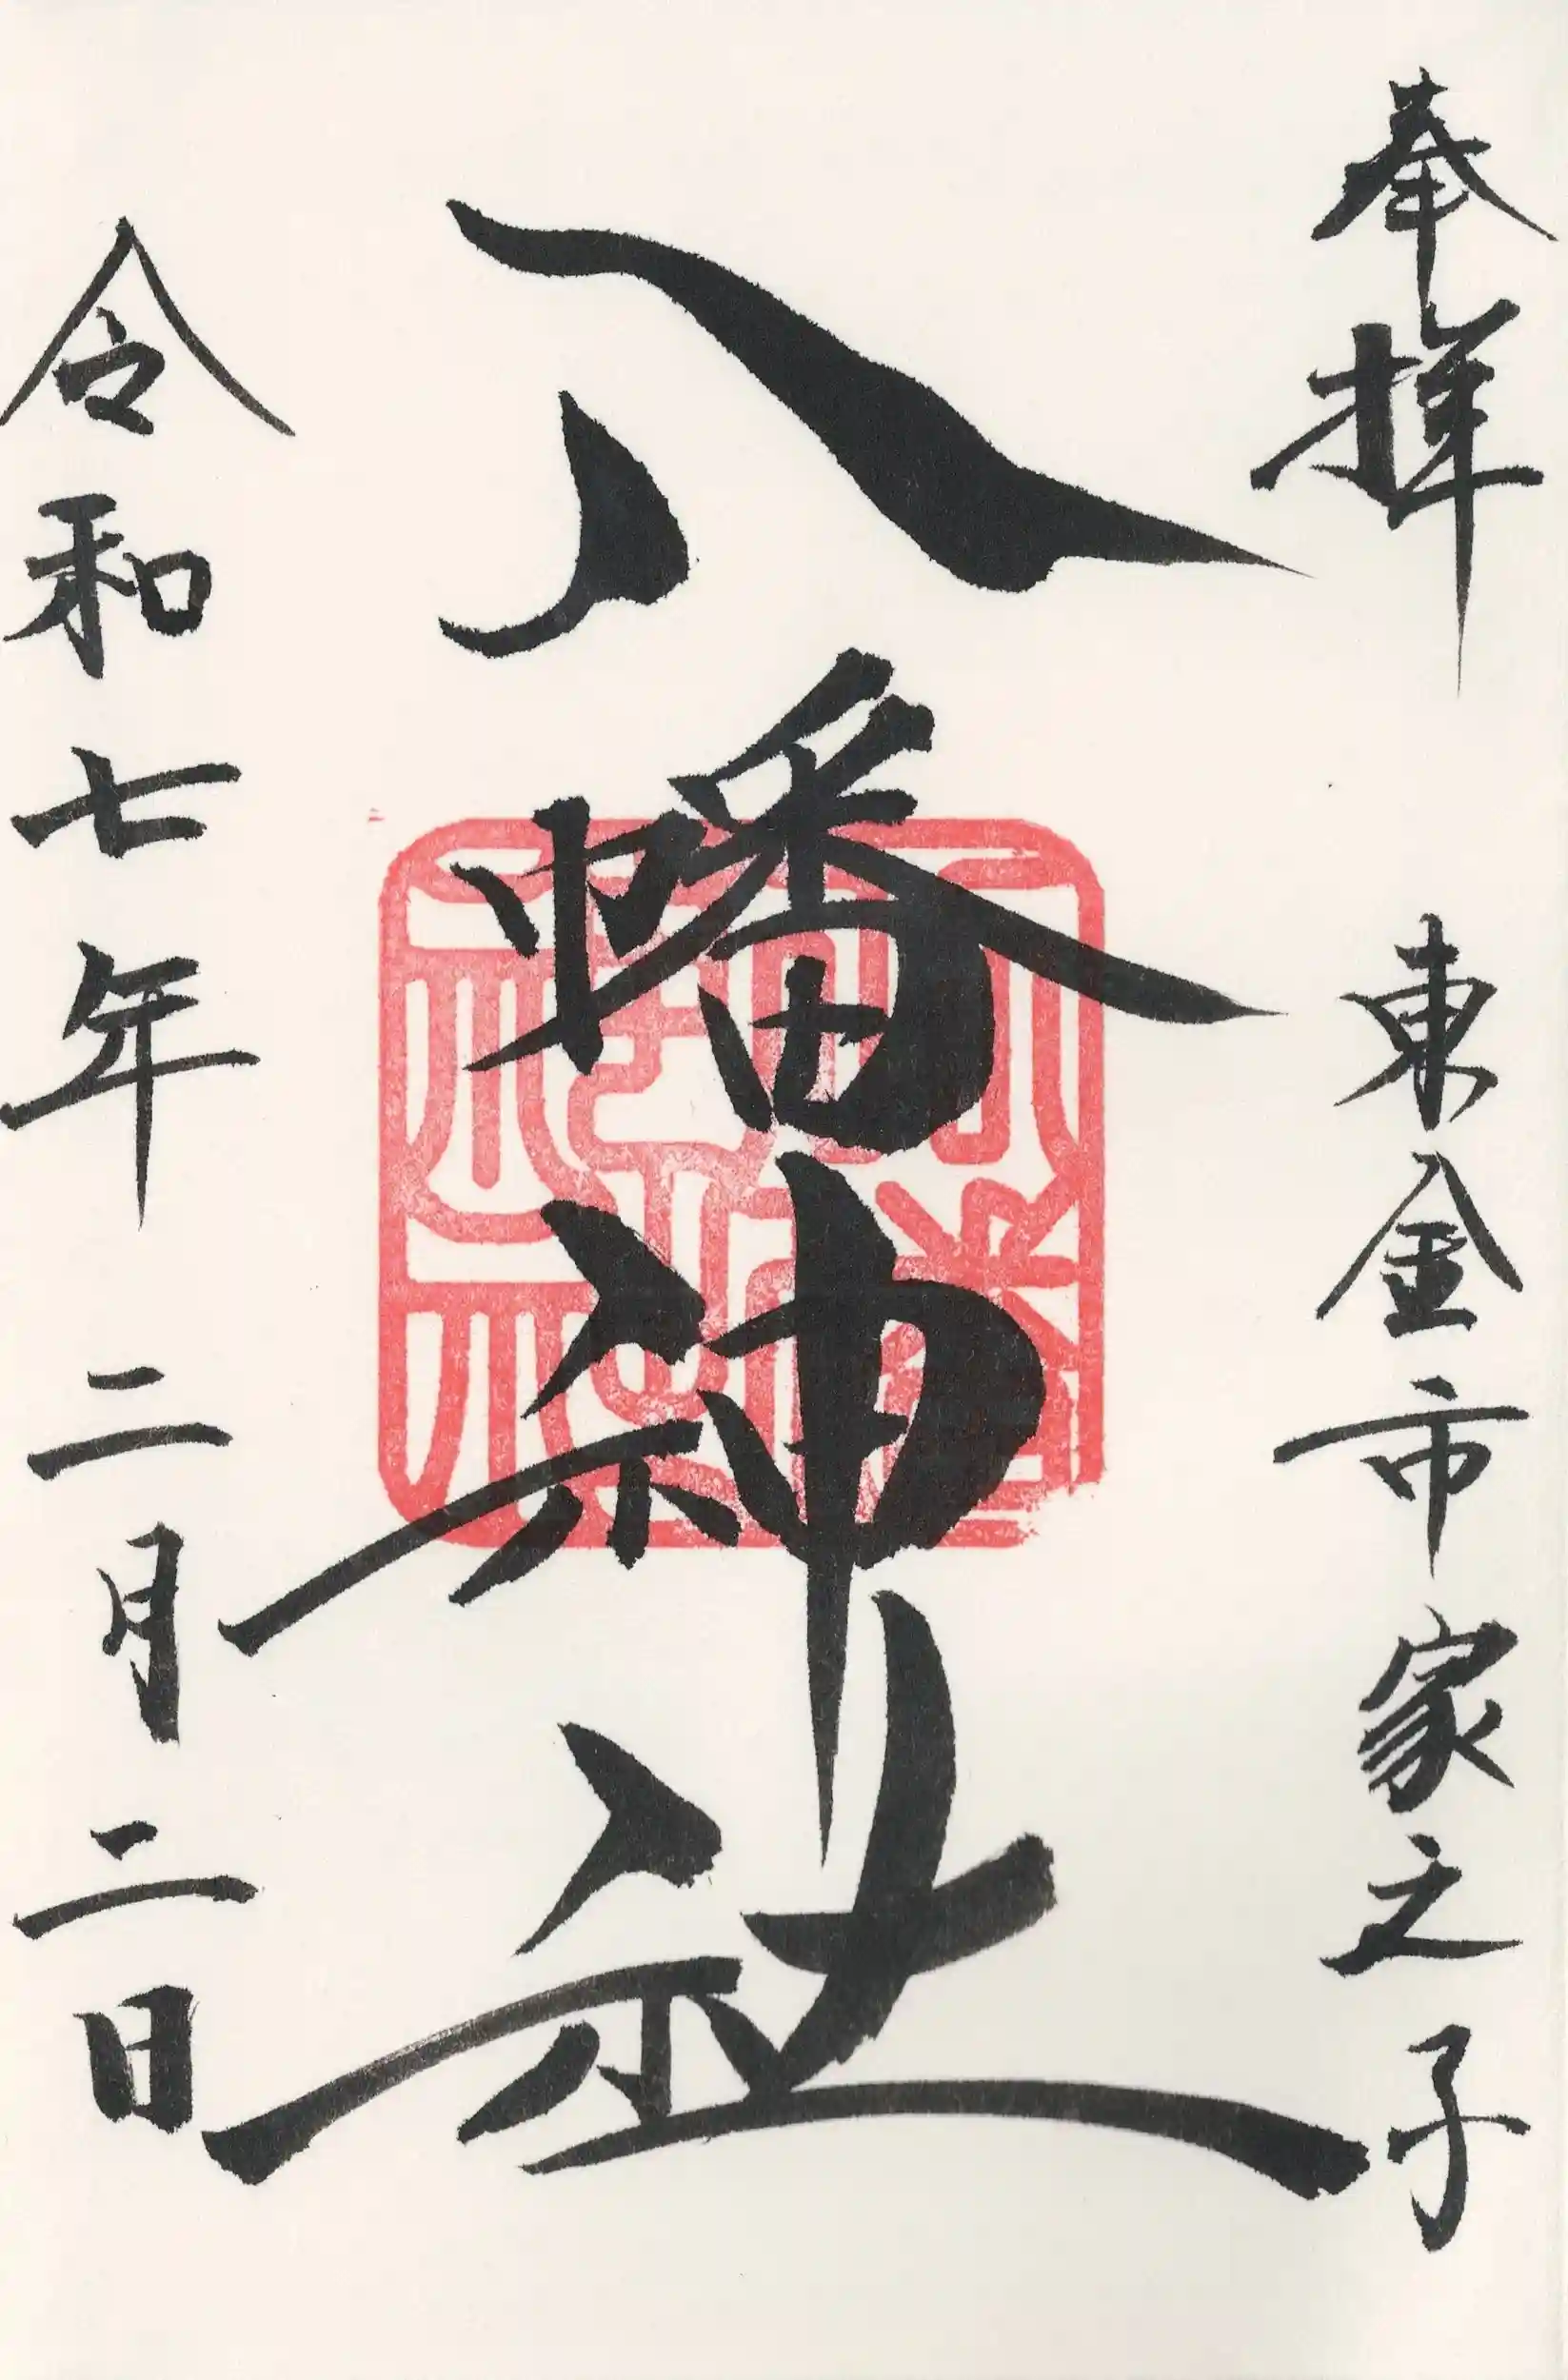 奉拝 東金市家之子
八幡神社
令和七年二月二日